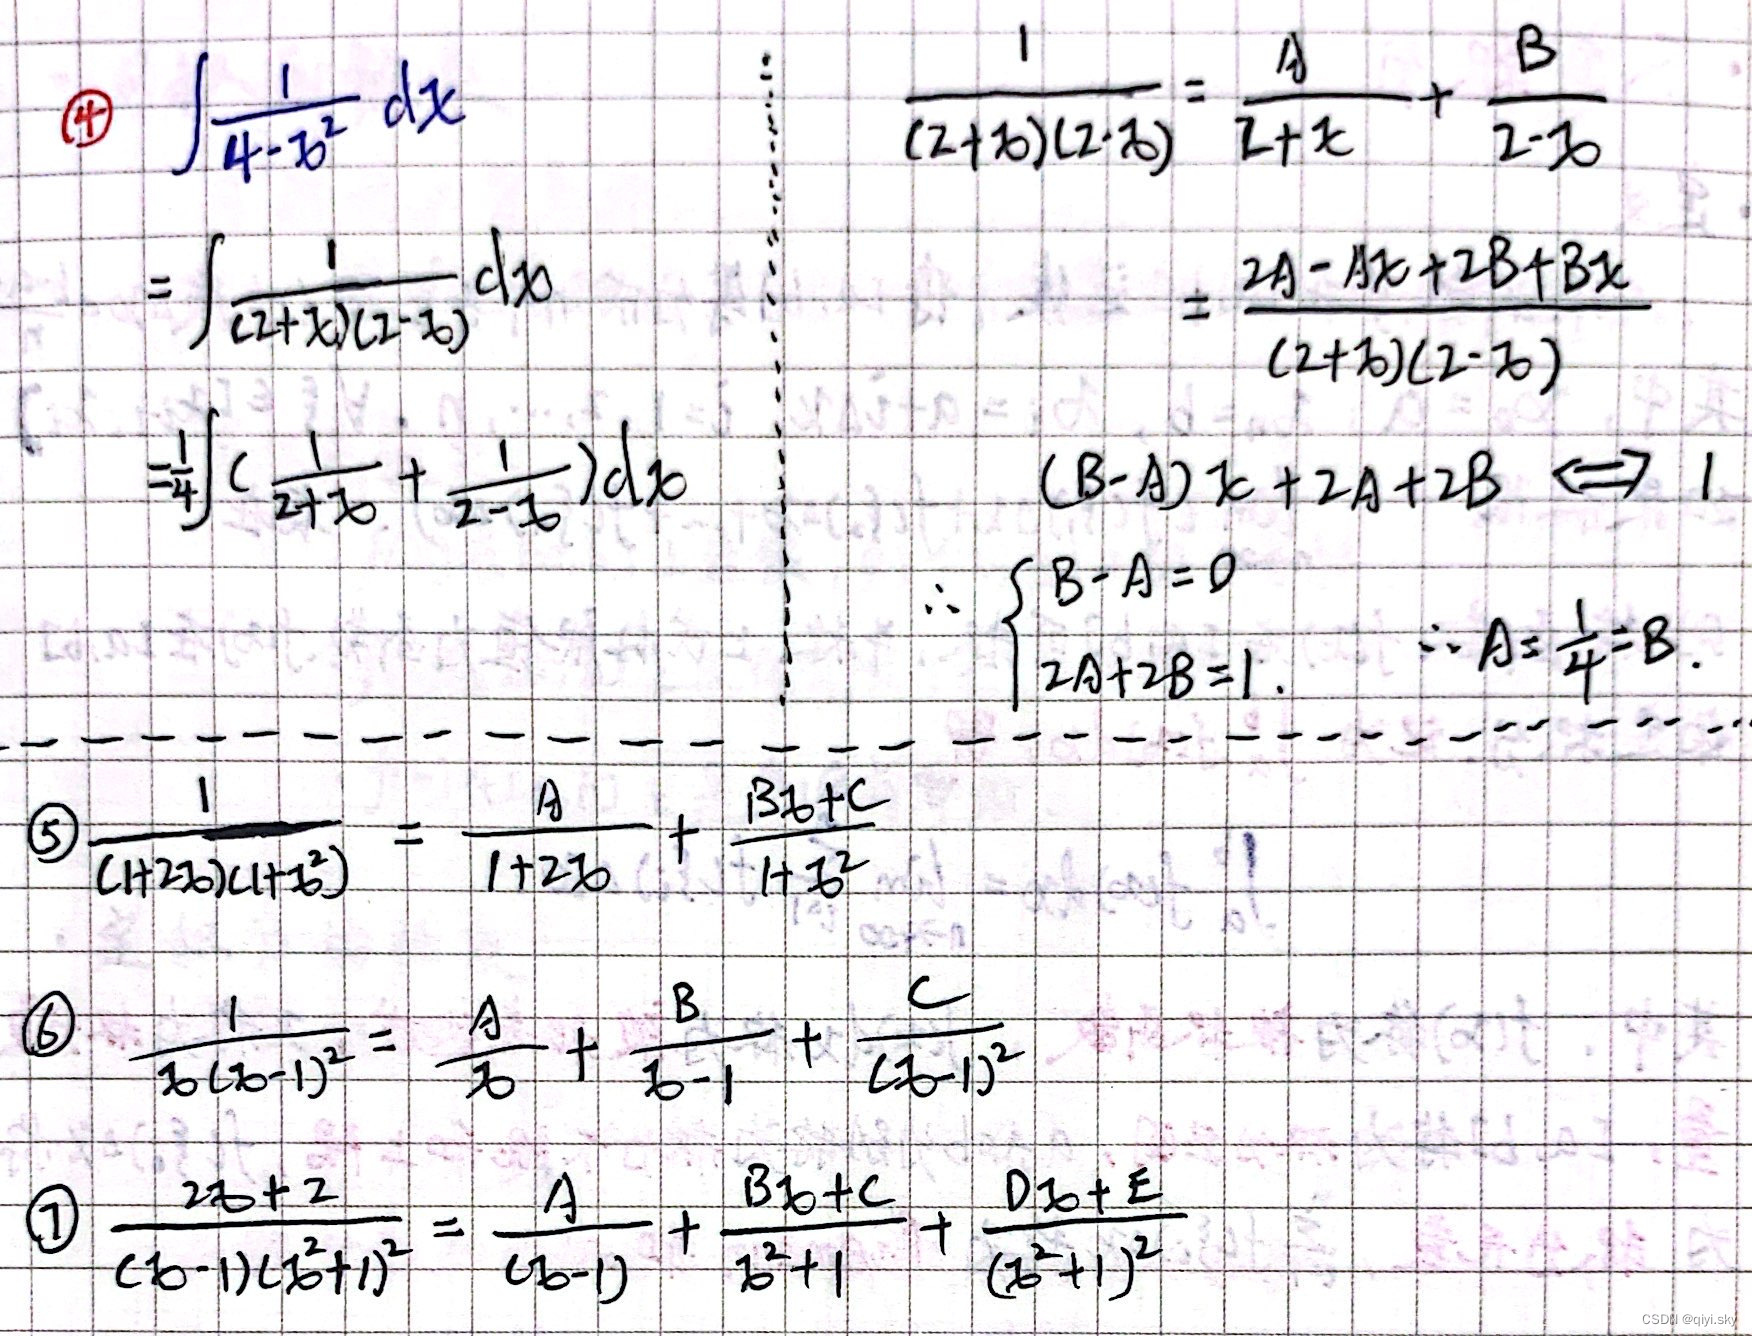 ④ ∫ 1/(4-x²) dx
= ∫ 1/((2+x)(2-x)) dx
= 1/4 ∫ ( 1/(2+x) + 1/(2-x) ) dx
1/((2+x)(2-x)) = A/(2+x) + B/(2-x)
= (2A-Ax+2B+Bx)/((2+x)(2-x))
(B-A)x+2A+2B ⟺ 1
∴ { B-A=0
2A+2B=1. ∴ A=1/4=B.
⑤ 1/((1+2x)(1+x²)) = A/(1+2x) + (Bx+C)/(1+x²)
⑥ 1/(x(x-1)²) = A/x + B/(x-1) + C/(x-1)²
⑦ (2x+2)/((x-1)(x²+1)²) = A/(x-1) + (Bx+C)/(x²+1) + (Dx+E)/(x²+1)²
CSDN @qiyi.sky